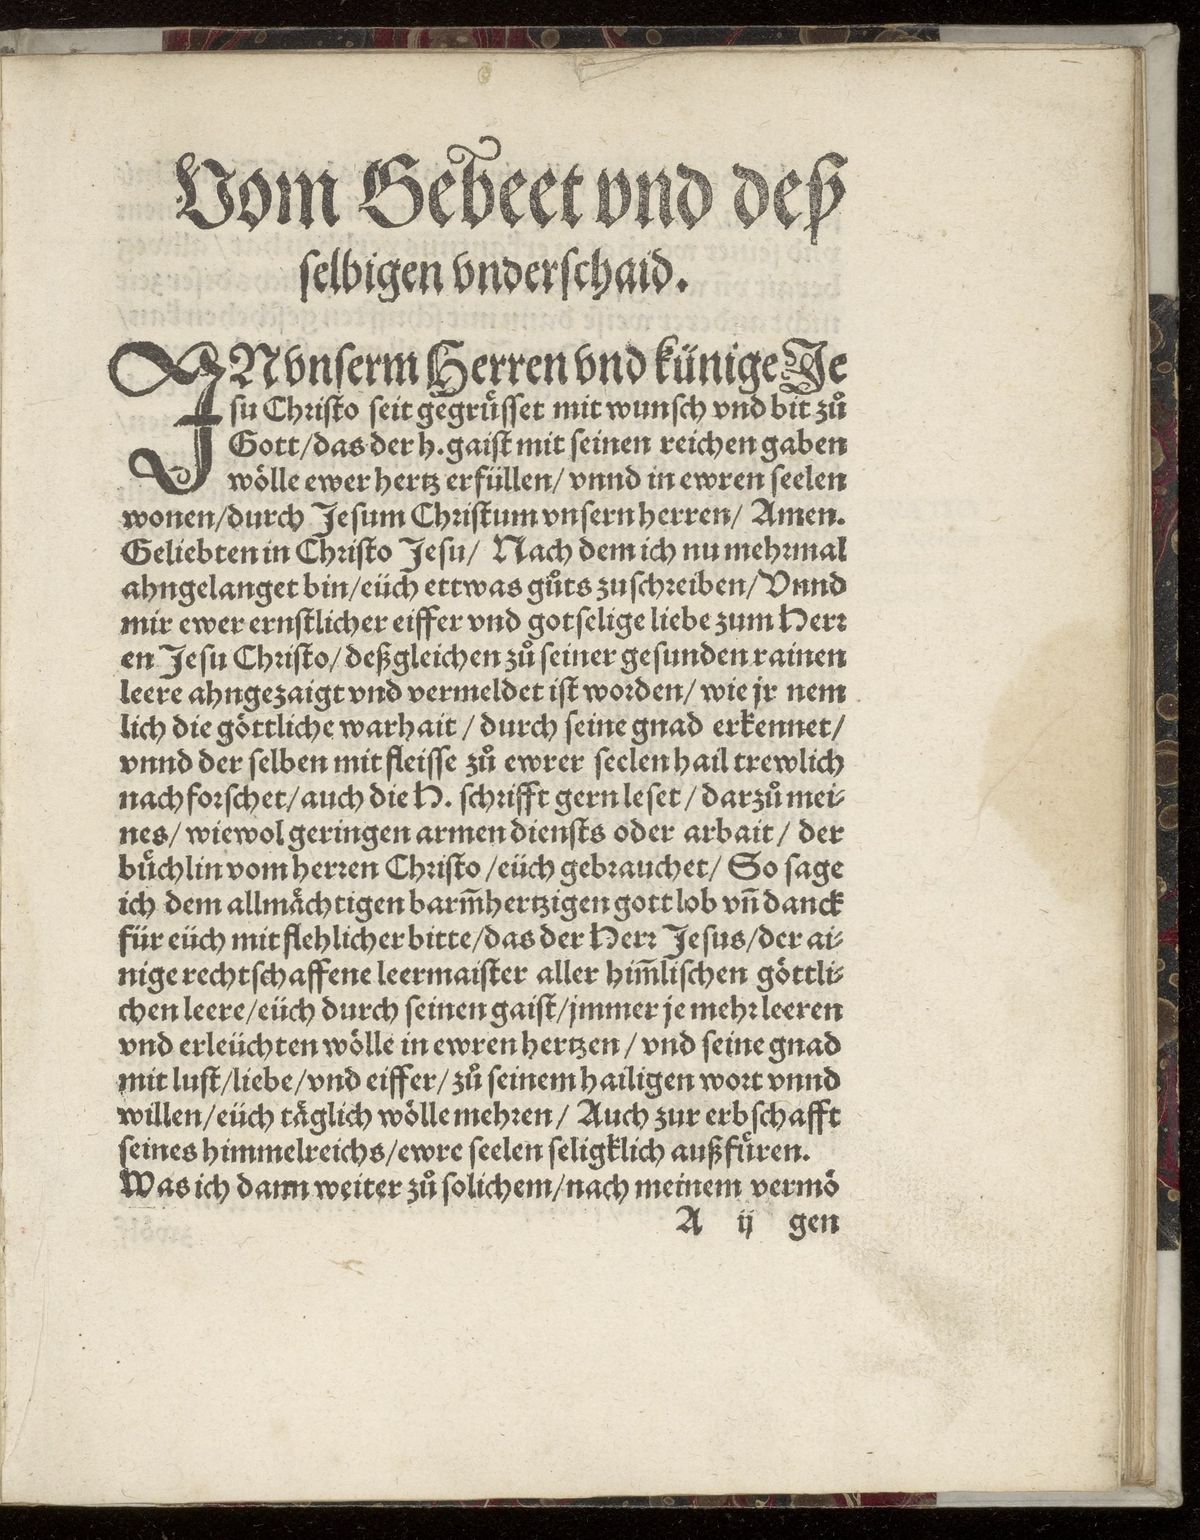 Vom Gebeet vnd deß
selbigen vnderschaid.
JN vnserm Herren vnd künige Je
su Christo seit gegrüsset mit wunsch vnd bit zů
Gott/das der h. gaist mit seinen reichen gaben
wölle ewer hertz erfüllen/ vnnd in ewren seelen
wonen/durch Jesum Christum vnsern herren/ Amen.
Geliebten in Christo Jesu/ Nach dem ich nu mehrmal
ahngelanget bin/eüch ettwas gůts zuschreiben/Vnnd
mir ewer ernstlicher eiffer vnd gotselige liebe zum Herr
en Jesu Christo/deßgleichen zů seiner gesunden rainen
leere ahngezaigt vnd vermeldet ist worden/ wie jr nem
lich die göttliche warhait / durch seine gnad erkennet/
vnnd der selben mit fleisse zů ewrer seelen hail trewlich
nachforschet/auch die H. schrifft gern leset / darzů mei-
nes/ wiewol geringen armen diensts oder arbait / der
bůchlin vom herren Christo /eüch gebrauchet/ So sage
ich dem allmächtigen barm̄hertzigen gott lob vn̄ danck
für eüch mit flehlicher bitte/das der Herr Jesus/der ai-
nige rechtschaffene leermaister aller him̄lischen göttli-
chen leere/eüch durch seinen gaist/jmmer je mehr leeren
vnd erleüchten wölle in ewren hertzen / vnd seine gnad
mit lust/liebe/vnd eiffer/zů seinem hailigen wort vnnd
willen/eüch täglich wölle mehren / Auch zur erbschafft
seines himmelreichs/ewre seelen seligklich außfüren.
Was ich dann weiter zů solichem/nach meinem vermö
A ij gen